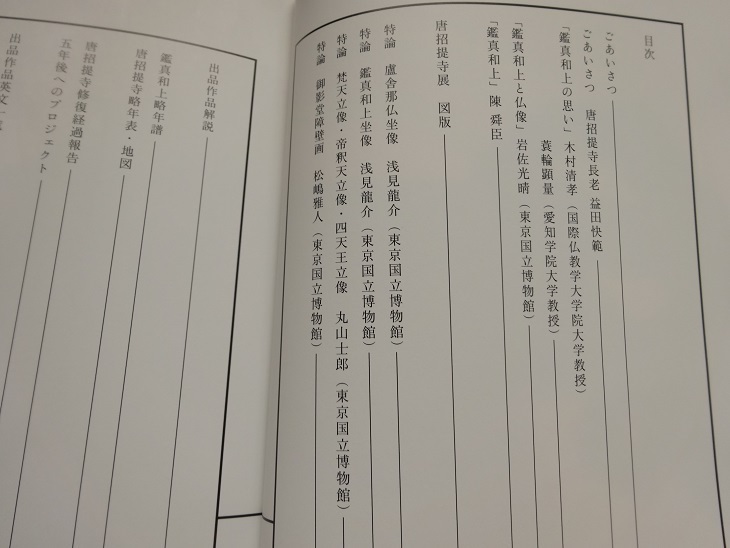 目次
ごあいさつ
ごあいさつ 唐招提寺長老 益田快範
「鑑真和上の思い」 木村清孝（国際仏教学大学院大学教授）
蓑輪顕量（愛知学院大学教授）
「鑑真和上と仏像」 岩佐光晴（東京国立博物館）
「鑑真和上」 陳 舜臣
唐招提寺展 図版
特論 盧舎那仏坐像 浅見龍介（東京国立博物館）
特論 鑑真和上坐像 浅見龍介（東京国立博物館）
特論 梵天立像・帝釈天立像・四天王立像 丸山士郎（東京国立博物館）
特論 御影堂障壁画 松嶋雅人（東京国立博物館）
出品作品解説
鑑真和上略年譜
唐招提寺略年表・地図
唐招提寺修復経過報告
五年後へのプロジェクト
出品作品英文一覧